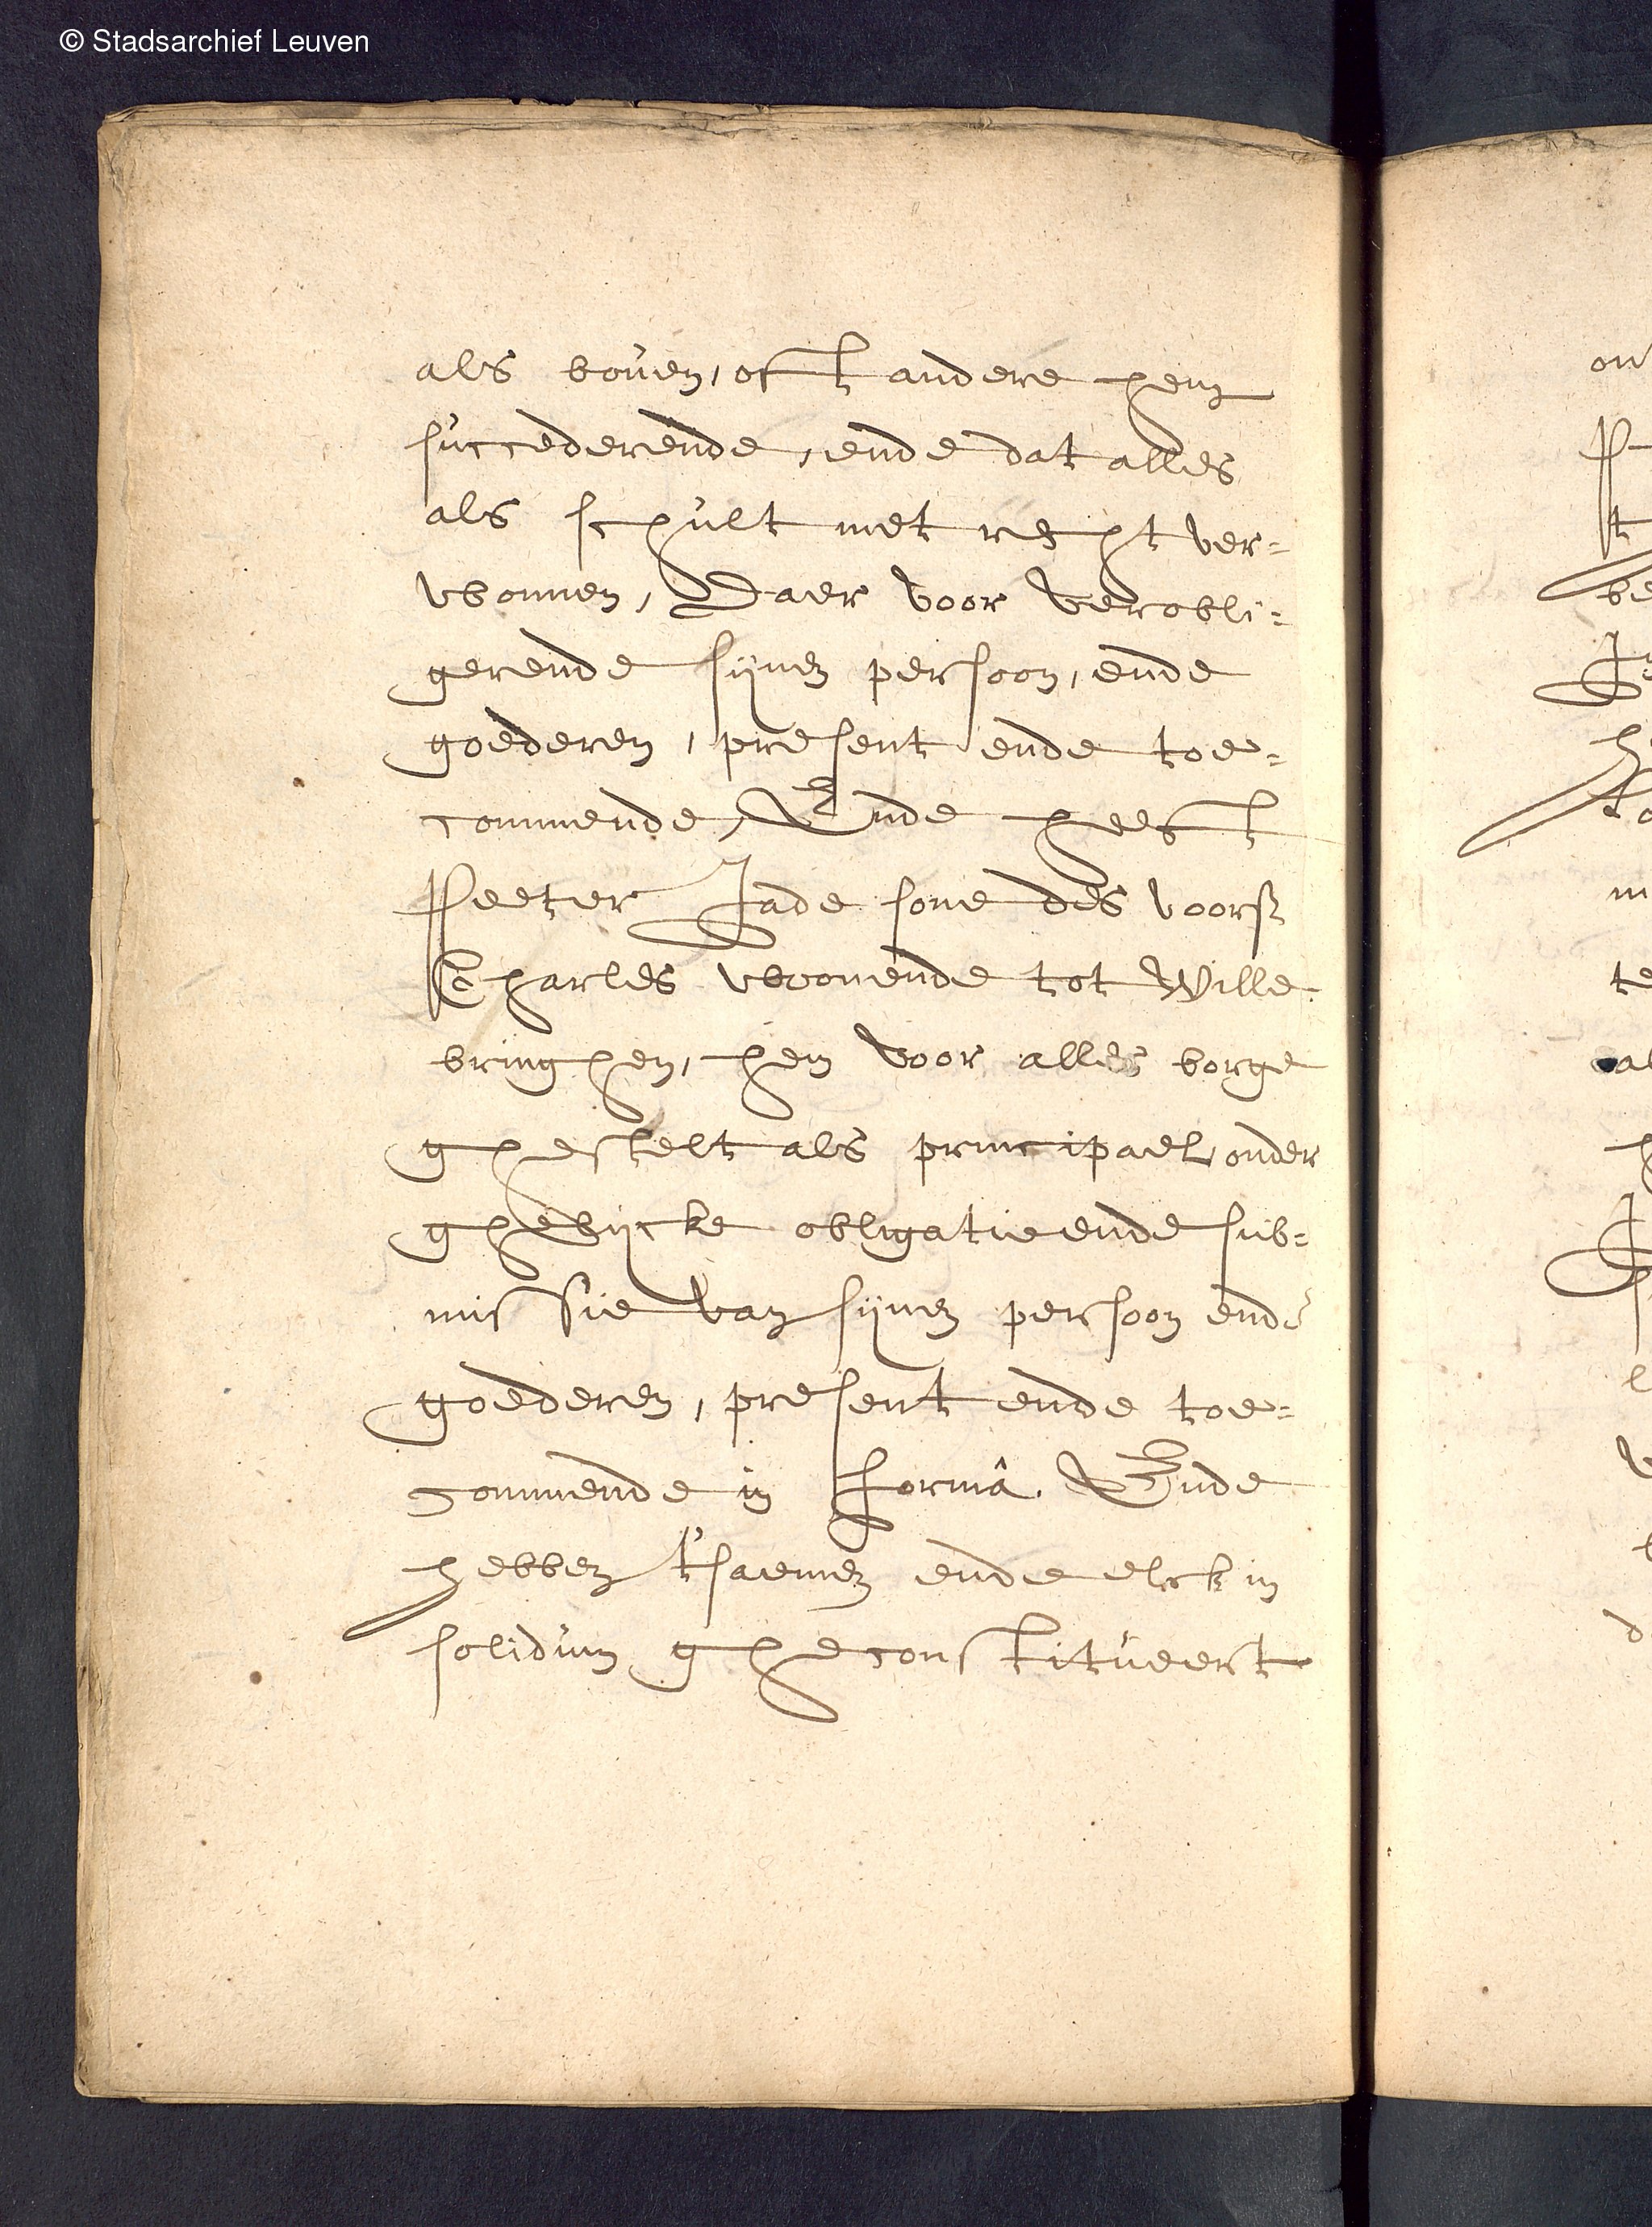 © Stadsarchief Leuven
als boven, oft andere hem
succederende, ende dat alles
als schult met recht ver=
wonnen, Daer voor verobli=
gerende sijnen persoon, ende
goederen, present ende toe=
commende, Ende heeft
Peeter Jade sone des voors
Charles woonende tot Wille
bringhen, hem voor alles borge
ghestelt als principael, onder
ghelijcke obligatie ende sub=
missie van sijnen persoon ende
goederen, present ende toe=
commende in formâ. Ende
hebben t'saemen ende elck in
solidum gheconstitueert